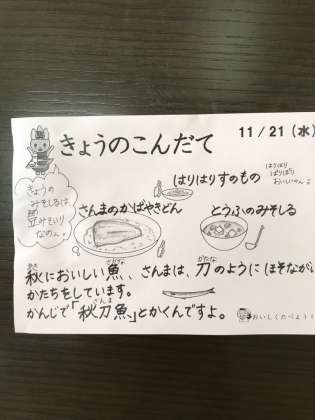 きょうのこんだて
11/21（水）
はりはりすのもの
はりはり
ぱりぱり
おいしいのんこ
きょうの
みそしるは、
みそいり
なのん！
さんまのかばやきどん
とうふのみそしる
秋においしい魚、さんまは、刀のようにほそながい
あき さかな かたな
かたちをしています。
さんま
かんじで「秋刀魚」とかくんですよ。
おいしくたべよう！